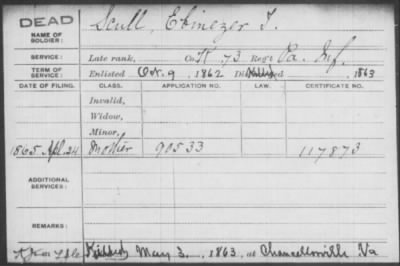 DEAD
NAME OF SOLDIER:
Scull, Ebinezer T.
SERVICE: Late rank, Co. K 73 Reg't Pa. Inf.
TERM OF SERVICE: Enlisted Oct. 9, 1862 Di Killed d , 1863
DATE OF FILING. CLASS. APPLICATION NO. LAW. CERTIFICATE NO.
Invalid,
Widow,
Minor,
1865 Apl. 24 Mother 90533 117873
ADDITIONAL SERVICES:
REMARKS:
Killed May 3, 1863, at Chancellorsville Va